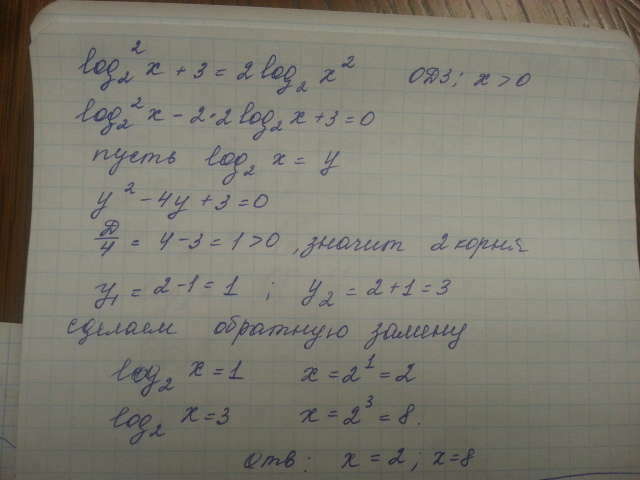 log₂² x + 3 = 2 log₂ x² ОДЗ; x > 0
log₂² x - 2·2 log₂ x + 3 = 0
пусть log₂ x = y
y² - 4y + 3 = 0
Д/4 = 4 - 3 = 1 > 0, значит 2 корня
y₁ = 2 - 1 = 1 ; y₂ = 2 + 1 = 3
сделаем обратную замену
log₂ x = 1 x = 2¹ = 2
log₂ x = 3 x = 2³ = 8.
отв: x = 2 ; x = 8